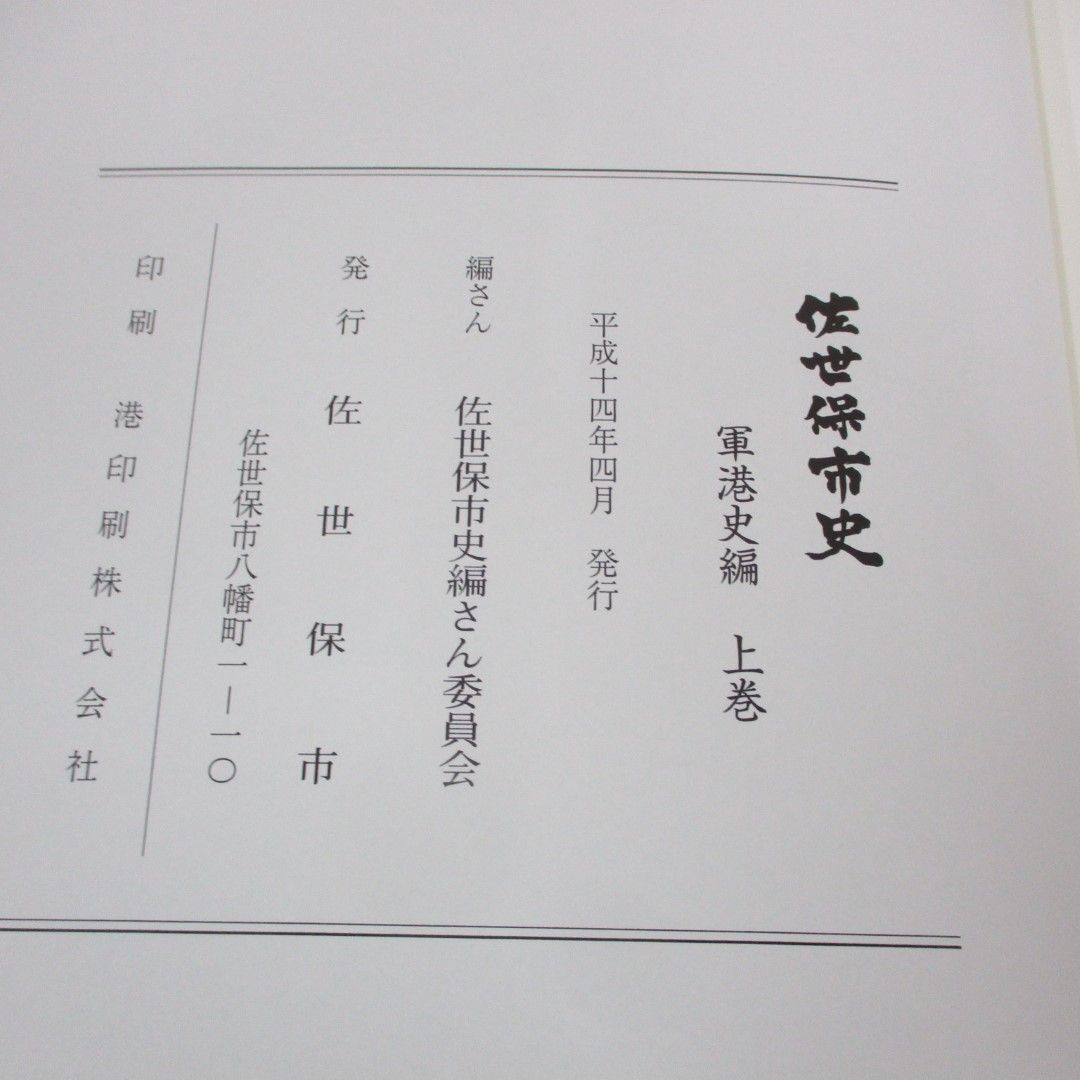 佐世保市史
軍港史編　上巻
平成十四年四月　発行
編さん　佐世保市史編さん委員会
発行　佐世保市
佐世保市八幡町一―一〇
印刷　港印刷株式会社